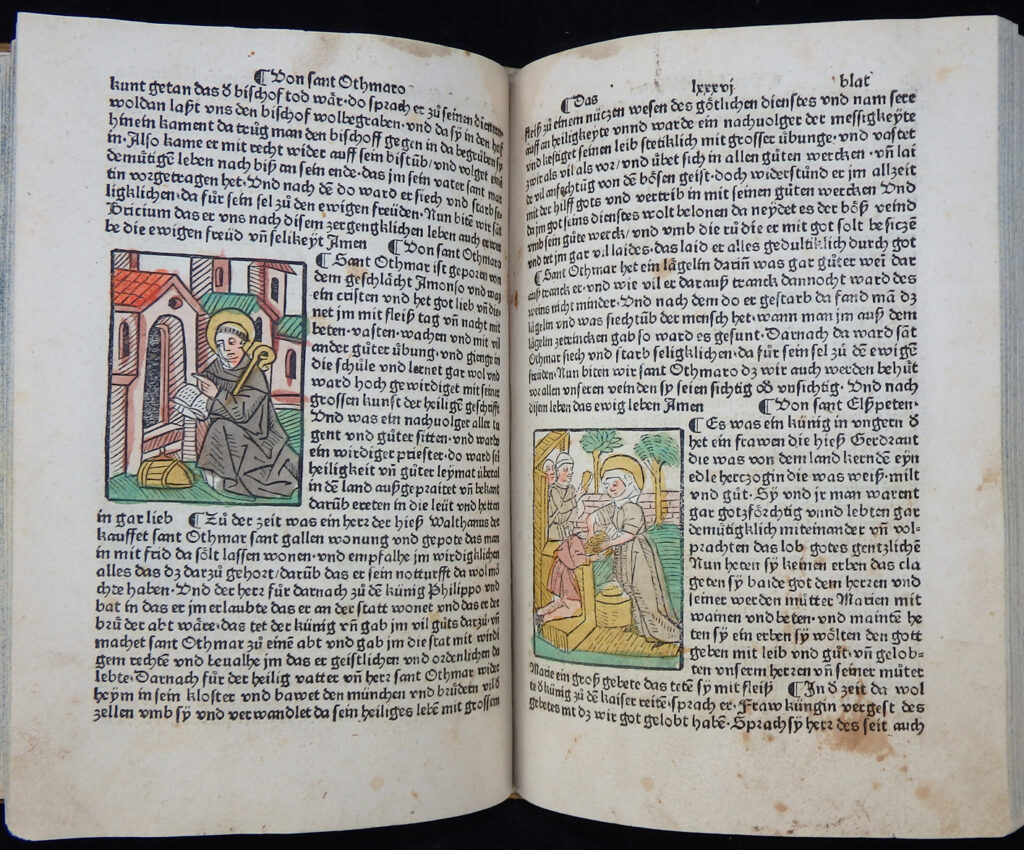 ¶ Von sant Othmaro
kunt getan das d̕ bischof tod wår·do sprach er zů seinen dienern
woldan laßt vns den bischof wolbegraben·vnd da sÿ in den hof
hinein kament da trůg man den bischoff gegen in da begrůben sÿ
in·Also kame er mit recht wider auff sein bistůb/vnd volget einē
demůtigē leben nach biß an sein ende·das jm sein vater sant mar
tin vorgetragen het·Vnd nach dē do ward er siech vnd starb se
ligklichen·da für sein sel zů den ewigen freüden·Nun bitē wir sāt
Bricium das er vns nach disem zergengklichen leben auch erwer
be die ewigen freüd vñ selikeÿt Amen ¶ Von sant Othmaro
¶ Sant Othmar ist geporen von
dem geschlächt Amonso vnd was
ein cristen vnd het got lieb vñ die
net jm mit fleiß tag vñ nacht mit
beten·vasten·wachen vnd mit vil
ander gůter übung·vnd gienge in
die schůle vnd lernet gar wol vnd
ward hoch gewirdiget mit seiner
grossen kunst der heiligē geschrifft
Vnd was ein nachuolger aller tu
gent vnd gůter sitten·vnd ward
ein wirdiger priester·do ward sei
heiligkeit vñ gůter leÿmat überal
in dē land außgepraitet vñ bekant
darůb ereten in die leüt vnd hetten
in gar lieb ¶ Zů der zeit was ein herr der hieß Walthanus der
kauffet sant Othmar sant gallen wonung vnd gepote das man
in mit frid da sölt lassen wonen·vnd empfalhe jm wirdigklichen
alles das dz darzů gehort/darůb das er sein notturfft da wol mö
chte haben·Vnd der herr für darnach zů dē künig Philippo vnd
bat in das er jm erlaubte das er an der statt wonet vnd das er der
brůder abt wäre·das tet der künig vñ gab jm vil gůts darzů·vñ
machet sant Othmar zů einē abt vnd gab jm die stat mit wirdi
gem rechtē vnd beualhe jm das er geistlichen vnd ordenlichen da
lebte·Darnach für der heilig vatter vñ herr sant Othmar wider
heÿm in sein kloster vnd bawet den münchen vnd brůdern vil d̕
zellen vmb sÿ vnd verwandlet da sein heiliges lebē mit grossem
¶ Das lxxxvj blat
fleiß zů einem nützen wesen des götlichen dienstes vnd nam sere
auff an heiligkeÿte vnnd warde ein nachuolger der messigkeÿte
vnd kestiget seinen leib stetiklich mit grosser übunge·vnd vastet
zwir als vil als vor/vnd übet sich in allen gůten wercken·vñ lai
de vil anfechtūg von dē bösen geist·doch widerstůnd er jm allzeit
mit der hilff gots vnd vertreib in mit seinen gůten wercken Vnd
da jm got seins dienstes wolt belonen da neÿdet es der böß veind
vmb sein gůte werck/vnd vmb die rů die er mit got solt besiczē
vnd tet jm gar vil laides·das laid er alles gedultiklich durch got
¶ Sant Othmar het ein lägelin darin̄ was gar gůter wei dar
auß tranck er·vnd wie vil er darauß tranck dannocht ward des
weins nicht minder·Vnd nach dem do er gestarb da fand mā dz
lägelin vnd was siechtůb der mensch het·wann man jm auß dem
lägelin zetrincken gab so ward es gesunt·Darnach da ward sāt
Othmar siech vnd starb seligklichen·da für sein sel zů dē ewigē
freuden·Nun biten wir sant Othmaro dz wir auch werden behůt
vor allen vnseren veinden sÿ seien sichtig od̕ vnsichtig·Vnd nach
disem leben das ewig leben Amen ¶ Von sant Elßpeten·
¶ Es was ein künig in vngern d̕
het ein frawen die hieß Gerdraut
die was von dem land kerndē eyn
edle herczogin die was weiß·milt
vnd gůt·Sÿ vnd jr man warent
gar gotzförchtig vnnd lebten gar
demůtigklich miteinander vñ vol-
prachten das lob gotes gentzlichē
Nun heten sÿ keinen erben das cla
geten sÿ baide got dem herren vnd
seiner werden můtter Marien mit
wainen vnd beten·vnd maintē he
ten sÿ ein erben sÿ wölten den gott
geben mit leib vnd gůt·vñ gelob-
ten vnserem herren vñ seiner můter
Marie ein groß gebete das tetē sÿ mit fleiß ¶ In d̕ zeit da wol
te d̕ künig zů dē kaiser reitē·sprach er·Fraw küngin vergest des
gebetes nit dz wir got gelobt habē·Sprach sÿ herr des seit auch